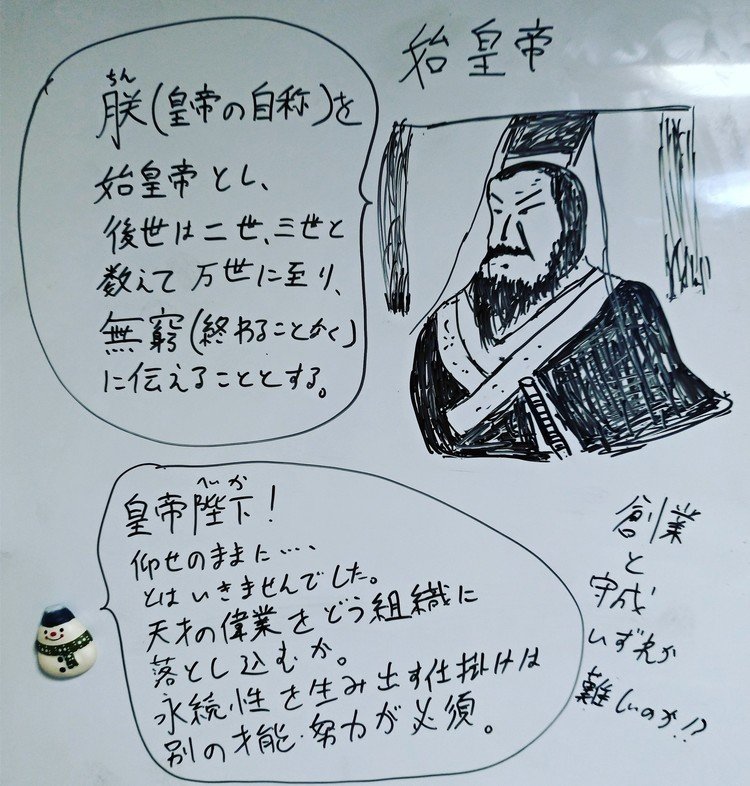 始皇帝
ちん
朕(皇帝の自称)を
始皇帝とし、
後世は二世、三世と
数えて万世に至り、
無窮(終わることなく)
に伝えることとする。
へいか
皇帝陛下!
仰せのままに…、
とはいきませんでした。
天才の偉業をどう組織に
落とし込むか。
永続性を生み出す仕掛けは
別の才能・努力が必須。
創業
と
守成
いずれが
難しいのか!?